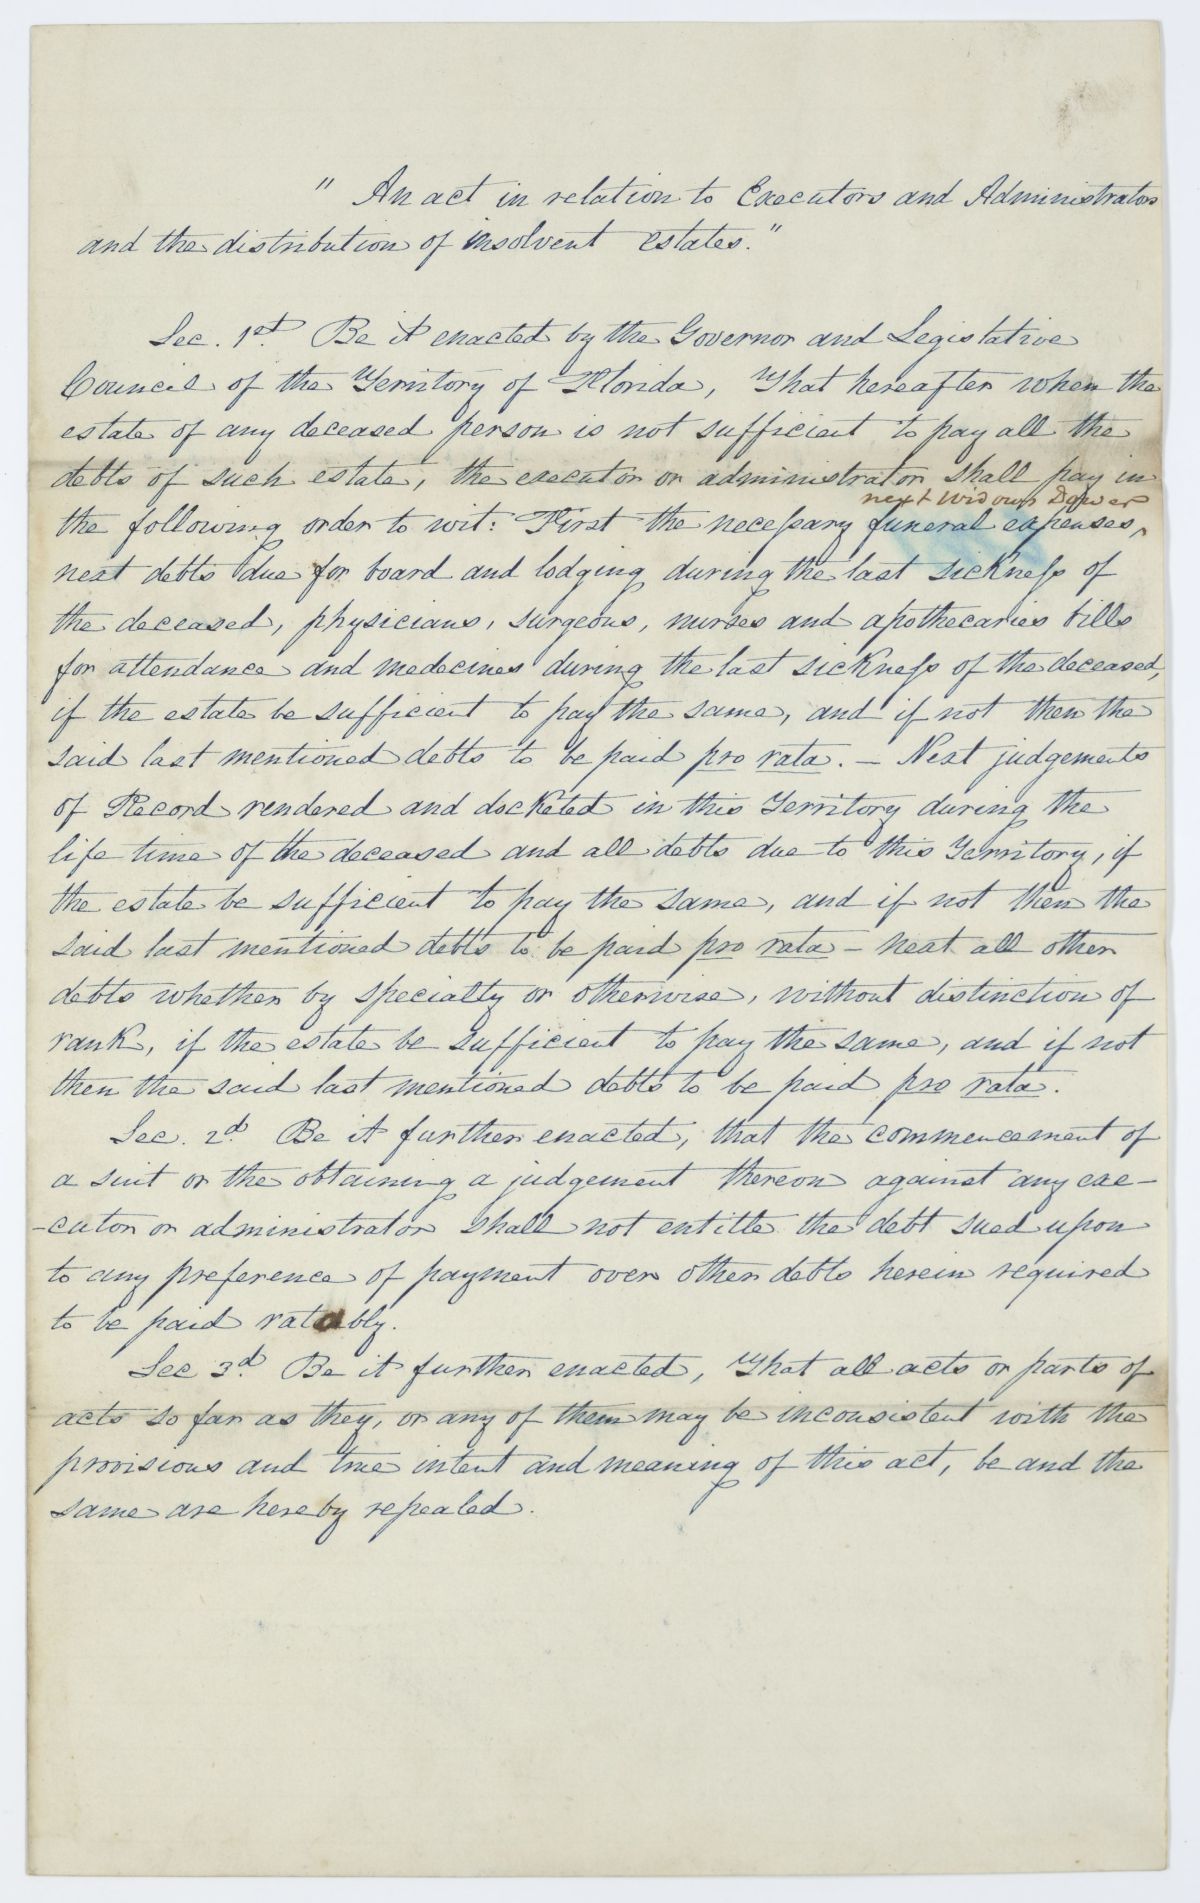 " An act in relation to Executors and Administrators
and the distribution of insolvent estates."
Sec. 1st. Be it enacted by the Governor and Legislative
Council of the Territory of Florida, That hereafter when the
estate of any deceased person is not sufficient to pay all the
debts of such estate, the executor or administrator shall pay in
next widows Dower
the following order to wit: First the necessary funeral expenses,^
next debts due for board and lodging during the last sickness of
the deceased, physicians, surgeons, nurses and apothecaries bills
for attendance and medecines during the last sickness of the deceased,
if the estate be sufficient to pay the same, and if not then the
said last mentioned debts to be paid pro rata. – Next judgements
of Record rendered and docketed in this Territory during the
life time of the deceased and all debts due to this Territory, if
the estate be sufficient to pay the same, and if not then the
said last mentioned debts to be paid pro rata – next all other
debts whether by specialty or otherwise, without distinction of
rank, if the estate be sufficient to pay the same, and if not
then the said last mentioned debts to be paid pro rata.
Sec. 2d. Be it further enacted, that the commencement of
a suit or the obtaining a judgement thereon against any exe-
-cutor or administrator shall not entitle the debt sued upon
to any preference of payment over other debts herein required
to be paid ratably.
Sec 3d. Be it further enacted, That all acts or parts of
acts so far as they, or any of them may be inconsistent with the
provisions and true intent and meaning of this act, be and the
same are hereby repealed.